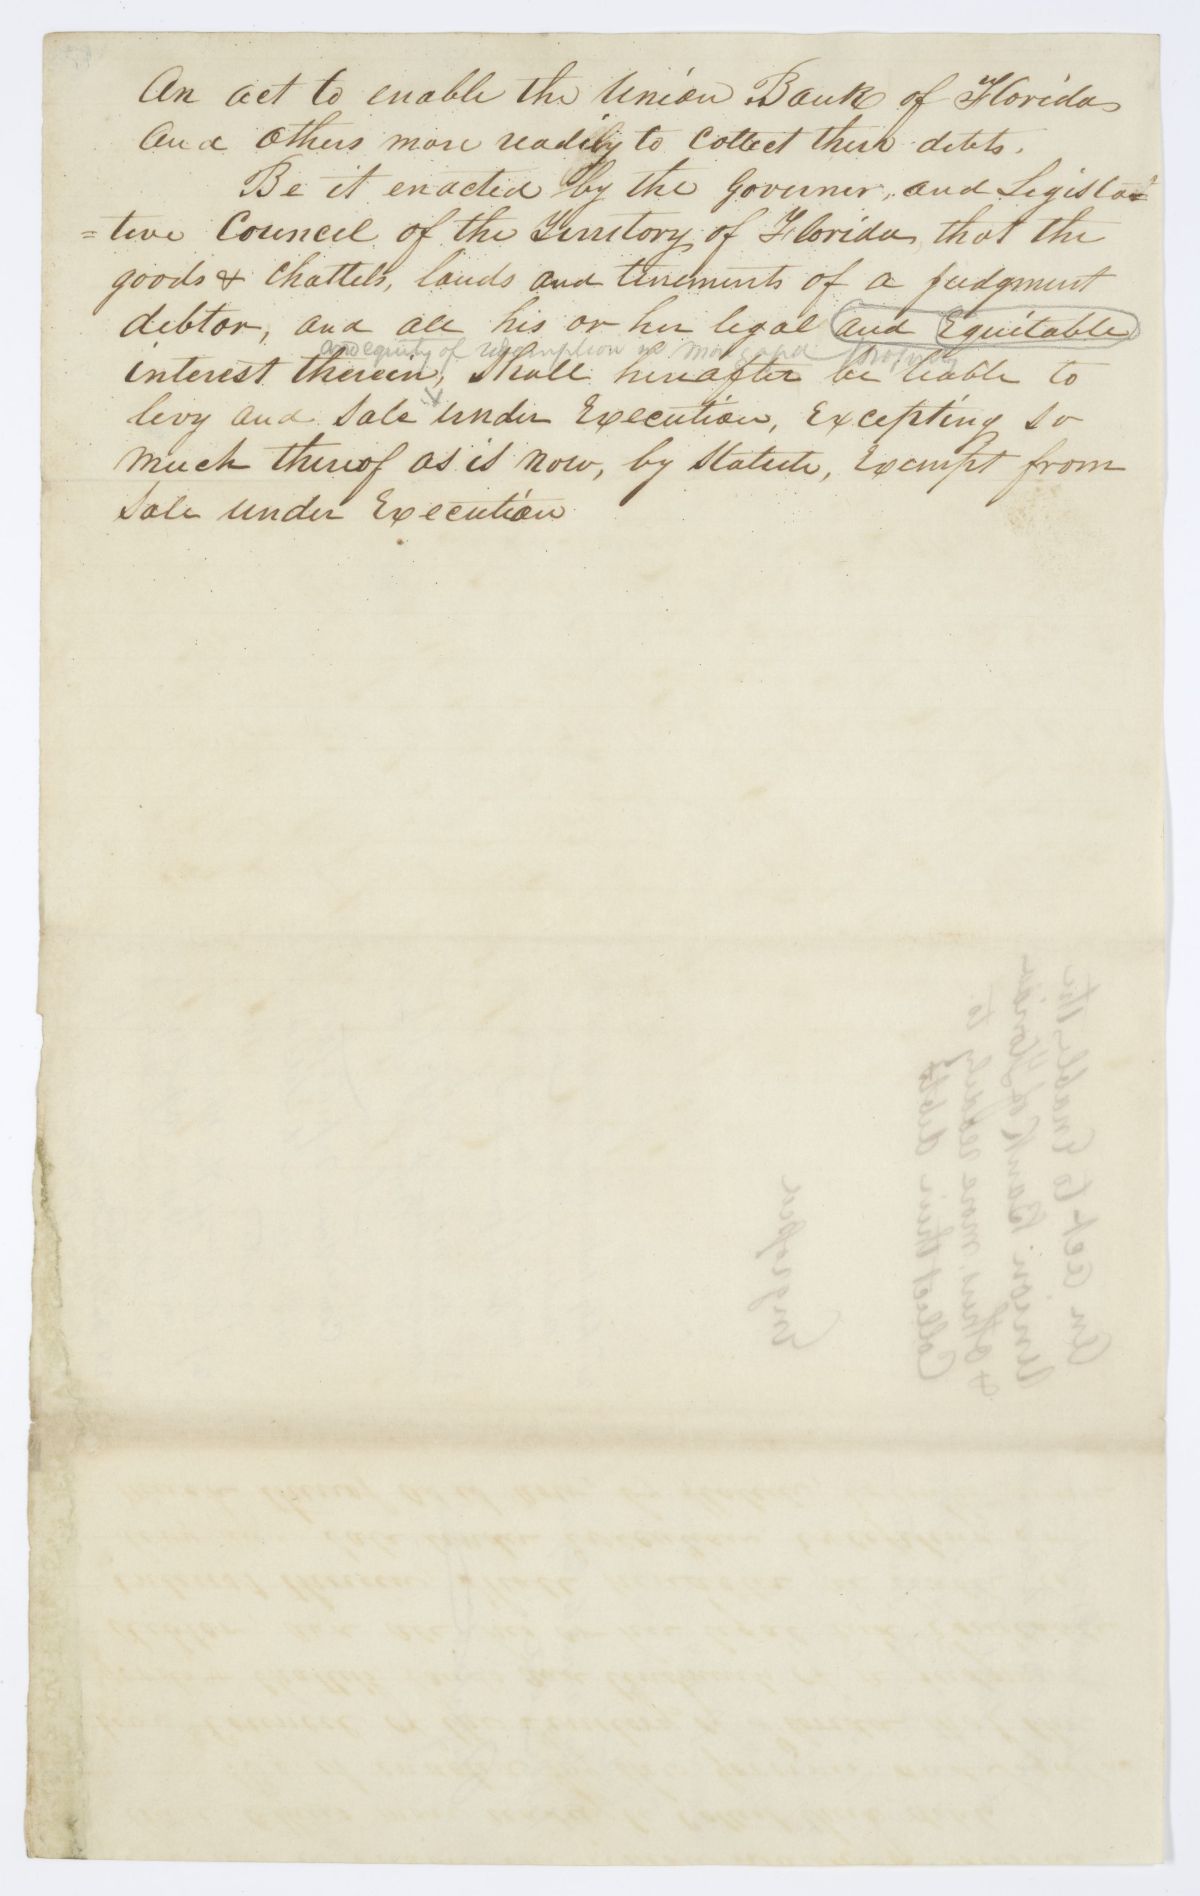 An act to enable the Union Bank of Florida
and others more readily to Collect their debts.
Be it enacted by the Governor, and Legisla=
=tive Council of the Territory of Florida, that the
goods & Chattels, lands and tenements of a judgment
debtor, and all his or her legal and Equitable
and equity of redemption in Mortgaged property
interest therein, Shall hereafter be liable to
levy and Sale under Execution, Excepting so
much thereof as is now, by Statute, Exempt from
Sale under Execution
An act to Enable the
Union Bank of Florida
& others, more readily to
Collect their debts